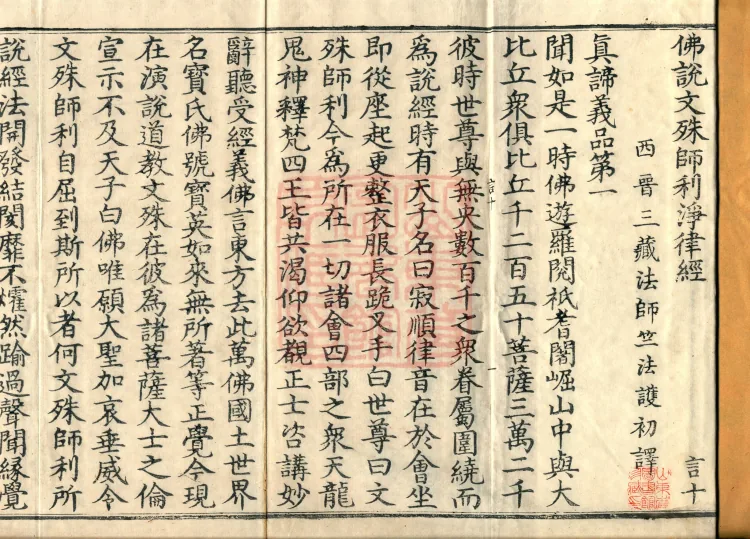 佛說文殊師利淨律經 言十
西晉三藏法師竺法護初譯
眞諦義品第一
聞如是一時佛遊羅閱祇耆闍崛山中與大
比丘衆俱比丘千二百五十菩薩三萬二千
言十 一
彼時世尊與無央數百千之衆眷屬圍繞而
為說經時有天子名曰寂順律音在於會坐
即從座起更整衣服長跪叉手白世尊曰文
殊師利今為所在一切諸會四部之衆天龍
鬼神釋梵四王皆共渴仰欲覩正士咨講妙
辭聽受經義佛言東方去此萬佛國土世界
名寶氏佛號寶英如來無所著等正覺今現
在演說道教文殊在彼為諸菩薩大士之倫
宣示不及天子白佛唯願大聖加哀垂威令
文殊師利自屈到斯所以者何文殊師利所
說經法開發結閡靡不燿然踰過聲聞緣覺